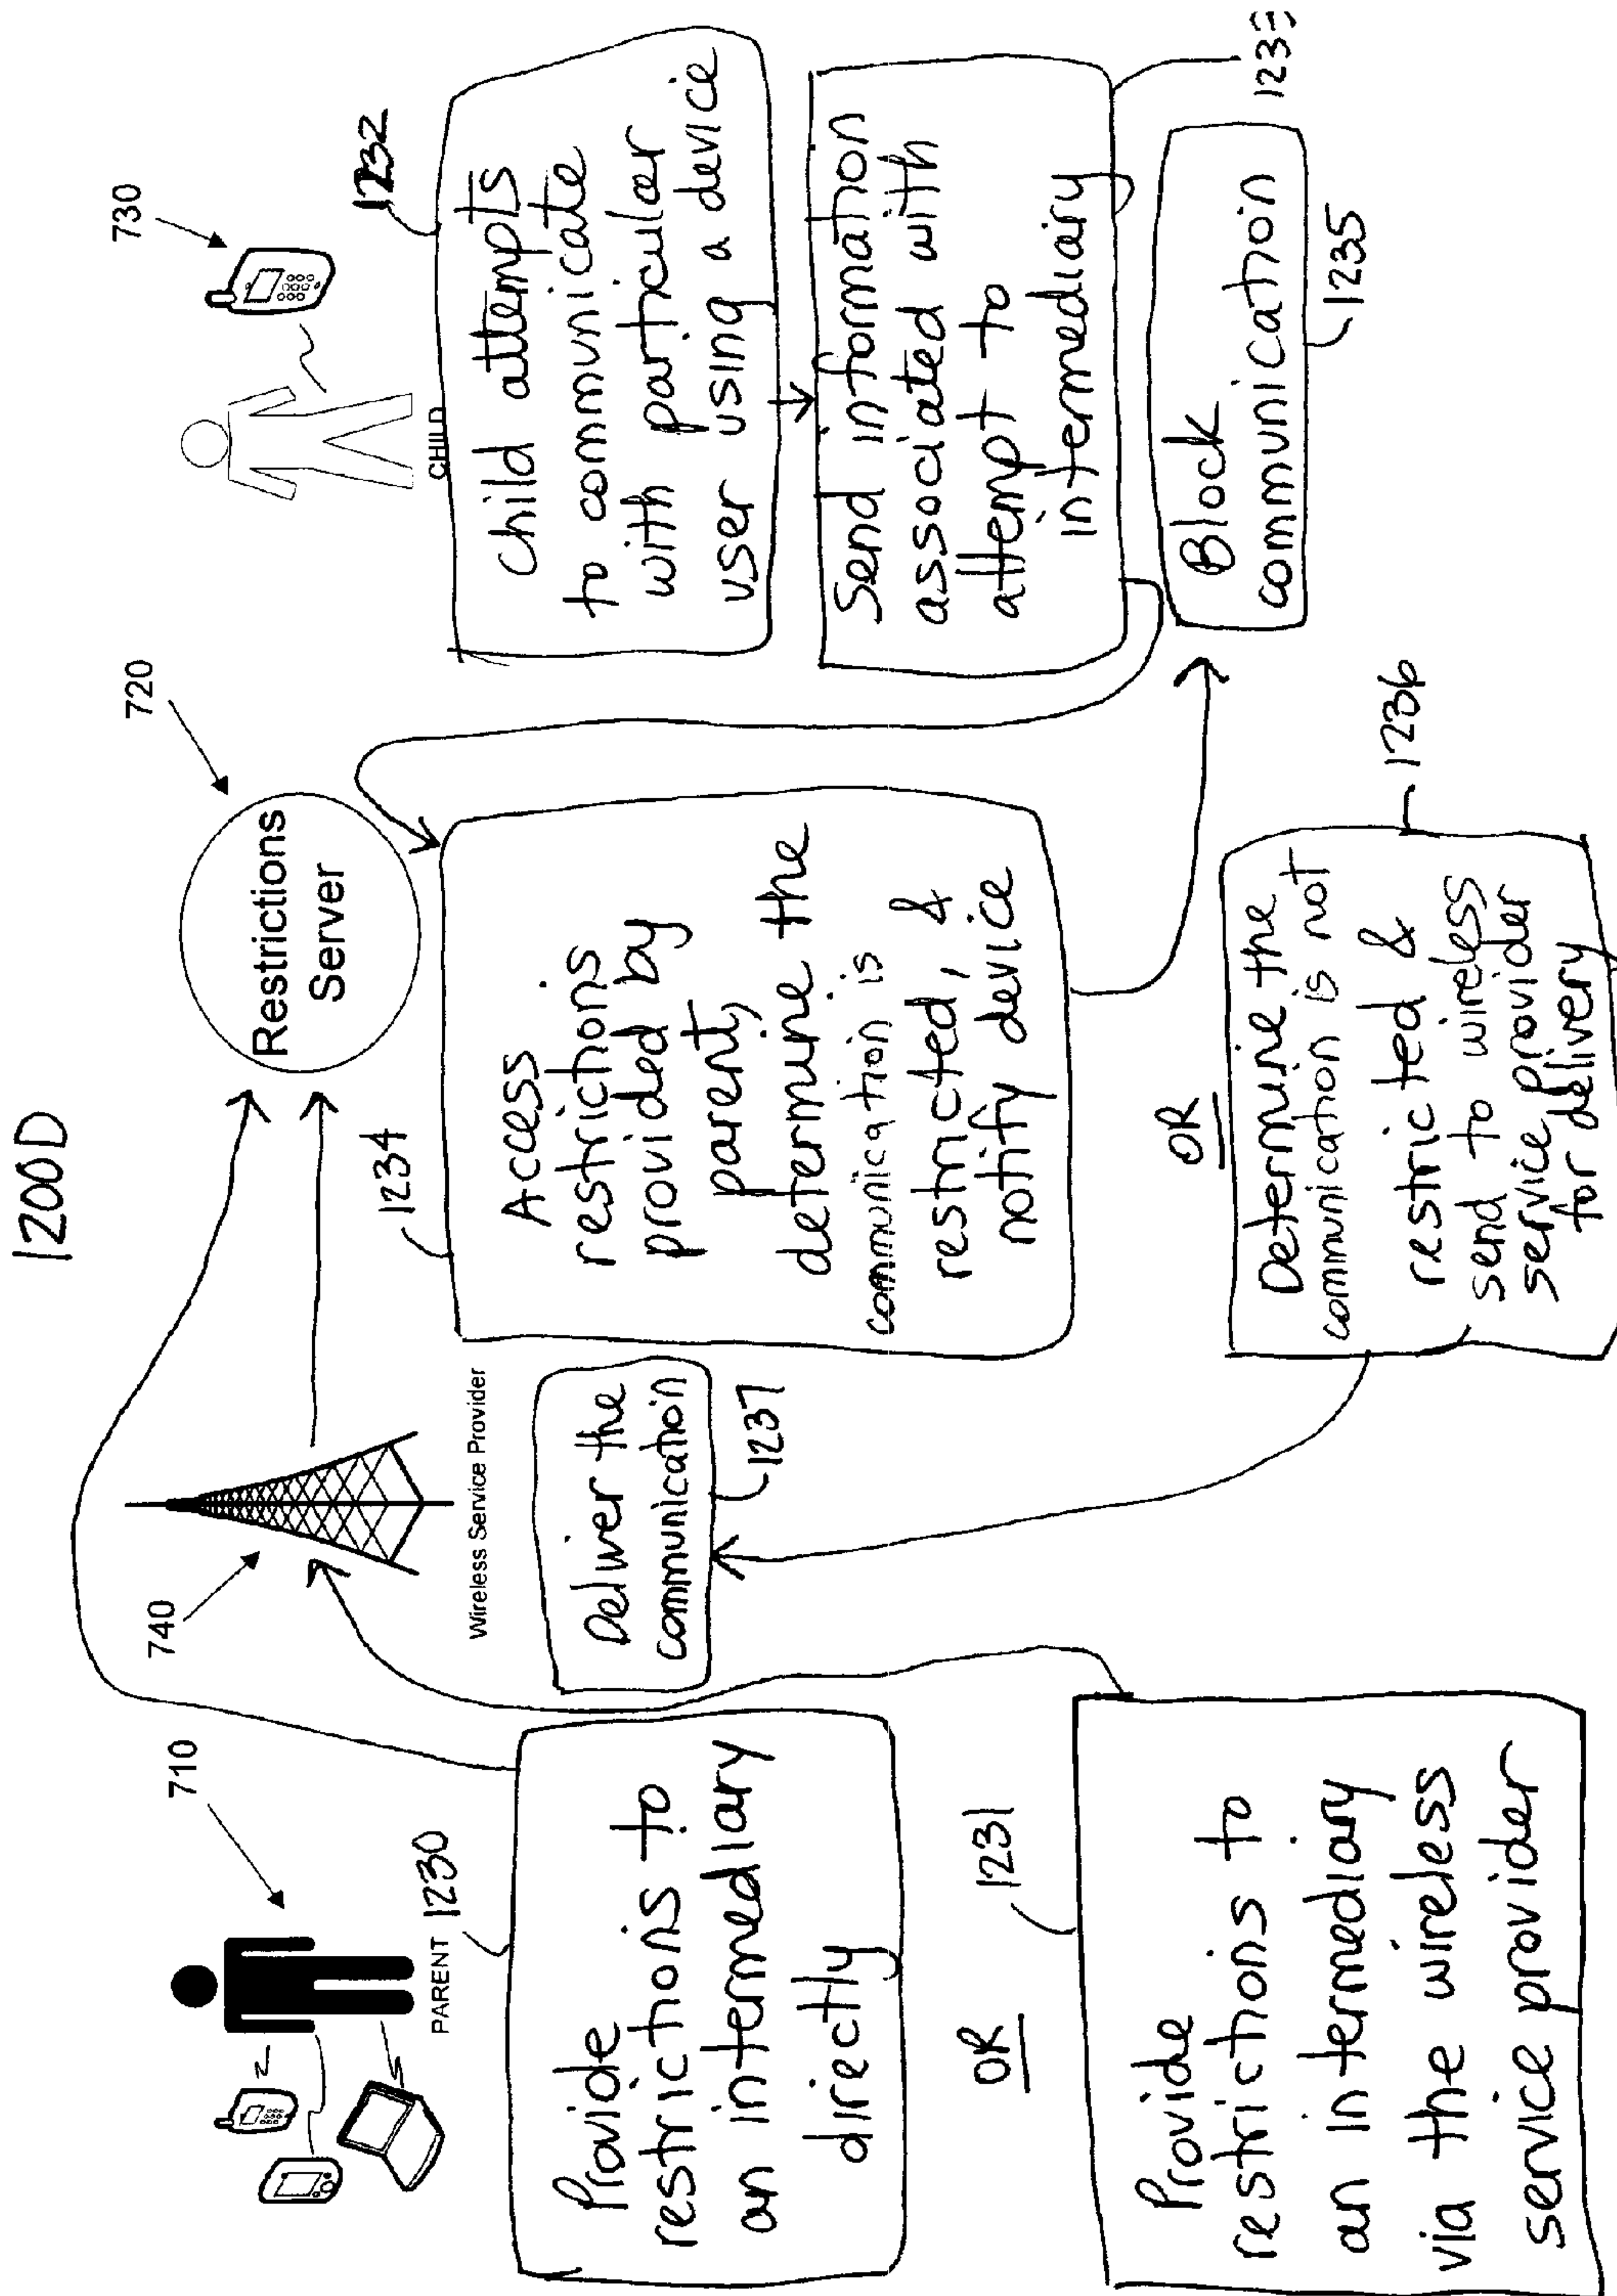 1200D
710
PARENT
1230
Provide
restrictions to
an intermediary
directly
OR
1231
Provide
restrictions to
an intermediary
via the wireless
service provider
740
Wireless Service Provider
Deliver the
communication
1237
720
Restrictions
Server
1234
Access
restrictions
provided by
parent,
determine the
communication is
restricted, &
notify device
OR
Determine the
communication is not
restricted &
send to wireless
service provider
for delivery
1236
730
CHILD
1232
Child attempts
to communicate
with particular
user using a device
Send information
associated with
attempt to
intermediary
Block
communication
1235